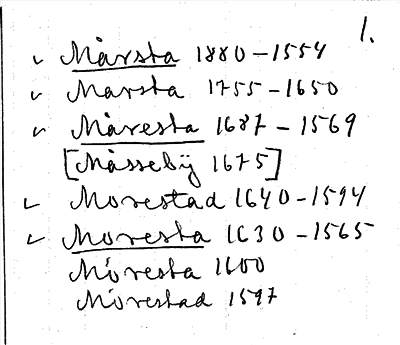 1.
✓ Mårsta 1880–1554
✓ Marsta 1755–1650
✓ Måresta 1687–1569
[Måsseby̋ 1675]
✓ Morestad 1640–1594
✓ Moresta 1630–1565
Móresta 1600
Mórestad 1597